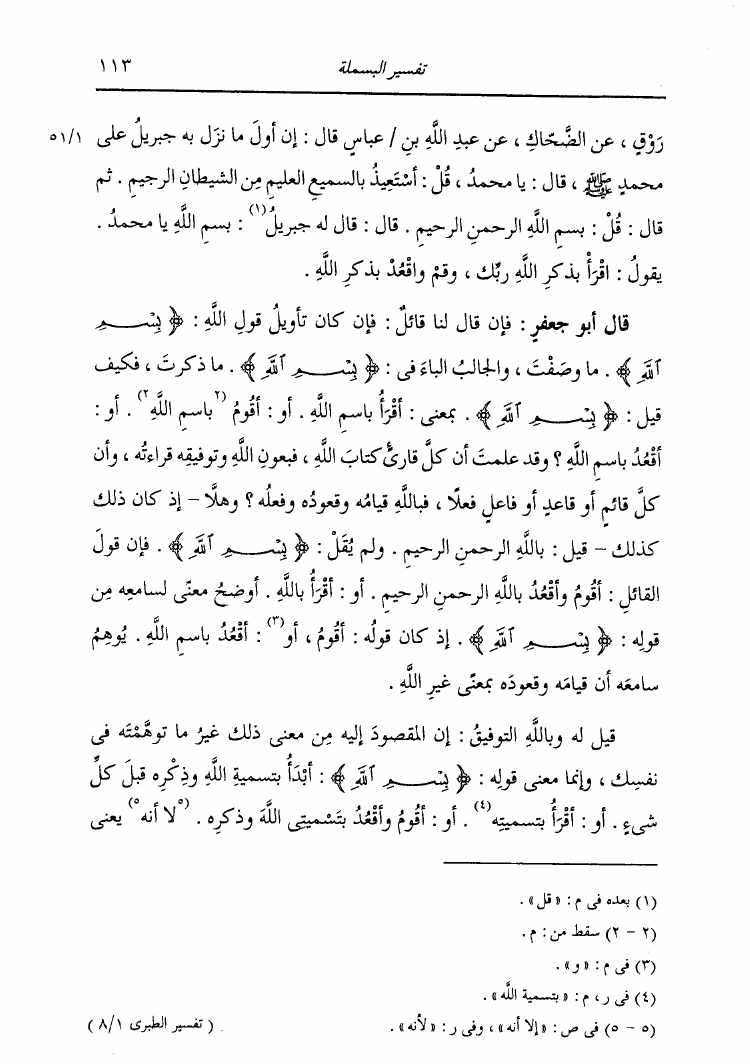 تفسير البسملة ١١٣
رَوْقٍ ، عن الضَّحّاكِ ، عن عبدِ اللَّهِ بنِ / عباسٍ قال : إن أولَ ما نزَل به جبريلُ على ٥١/١
محمدٍ ﷺ ، قال : يا محمدُ ، قُلْ : أسْتَعِيذُ بالسميعِ العليمِ مِن الشيطانِ الرجيمِ . ثم
قال : قُلْ : بسمِ اللَّهِ الرحمنِ الرحيمِ . قال : قال له جبريلُ(١) : بسمِ اللَّهِ يا محمدُ .
يقولُ : اقْرَأْ بذكرِ اللَّهِ ربِّك ، وقمْ واقْعُدْ بذكرِ اللَّهِ .
قال أبو جعفرٍ : فإن قال لنا قائلٌ : فإن كان تأويلُ قولِ اللَّهِ : ﴿ بِسْمِ
ٱللَّهِ ﴾ . ما وصَفْتَ ، والجالبُ الباءَ فى : ﴿ بِسْمِ ٱللَّهِ ﴾ . ما ذكرتَ ، فكيف
قيل : ﴿ بِسْمِ ٱللَّهِ ﴾ . بمعنى : أقْرَأُ باسمِ اللَّهِ . أو : أقُومُ (٢باسمِ اللَّهِ٢) . أو :
أقْعُدُ باسمِ اللَّهِ ؟ وقد علمتَ أن كلَّ قارئٍ كتابَ اللَّهِ ، فبعونِ اللَّهِ وتوفيقِه قراءتُه ، وأن
كلَّ قائمٍ أو قاعدٍ أو فاعلٍ فعلًا ، فباللَّهِ قيامُه وقعودُه وفعلُه ؟ وهلَّا – إذ كان ذلك
كذلك – قيل : باللَّهِ الرحمنِ الرحيمِ . ولم يُقَلْ : ﴿ بِسْمِ ٱللَّهِ ﴾ . فإن قولَ
القائلِ : أقُومُ وأقْعُدُ باللَّهِ الرحمنِ الرحيمِ . أو : أقْرَأُ باللَّهِ . أوضحُ معنًى لسامعِه مِن
قولِه : ﴿ بِسْمِ ٱللَّهِ ﴾ . إذ كان قولُه : أقُومُ ، أو(٣) : أقْعُدُ باسمِ اللَّهِ . يُوهِمُ
سامعَه أن قيامَه وقعودَه بمعنًى غيرِ اللَّهِ .
قيل له وباللَّهِ التوفيقُ : إن المقصودَ إليه مِن معنى ذلك غيرُ ما توهَّمْتَه فى
نفسِك ، وإنما معنى قولِه : ﴿ بِسْمِ ٱللَّهِ ﴾ : أبْدَأُ بتسميةِ اللَّهِ وذِكْرِه قبلَ كلِّ
شىءٍ . أو : أقْرَأُ بتسميتِه(٤) . أو : أقُومُ وأقْعُدُ بتَسْميتِى اللَّهَ وذكرِه . (٥لا أنه٥) يعنى
(١) بعده فى م : « قل » .
(٢ – ٢) سقط من : م .
(٣) فى م : « و » .
(٤) فى ر ، م : « بتسمية اللَّه » .
(٥ – ٥) فى ص : « إلا أنه » ، وفى ر : « لأنه » . ( تفسير الطبرى ٨/١ )